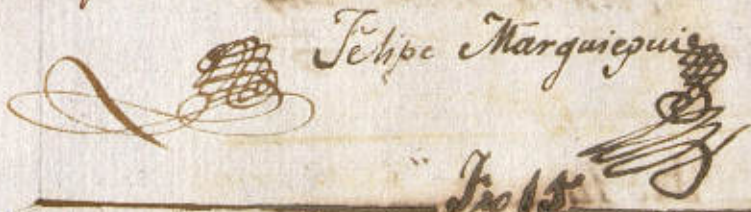 Felipe Marquiegui